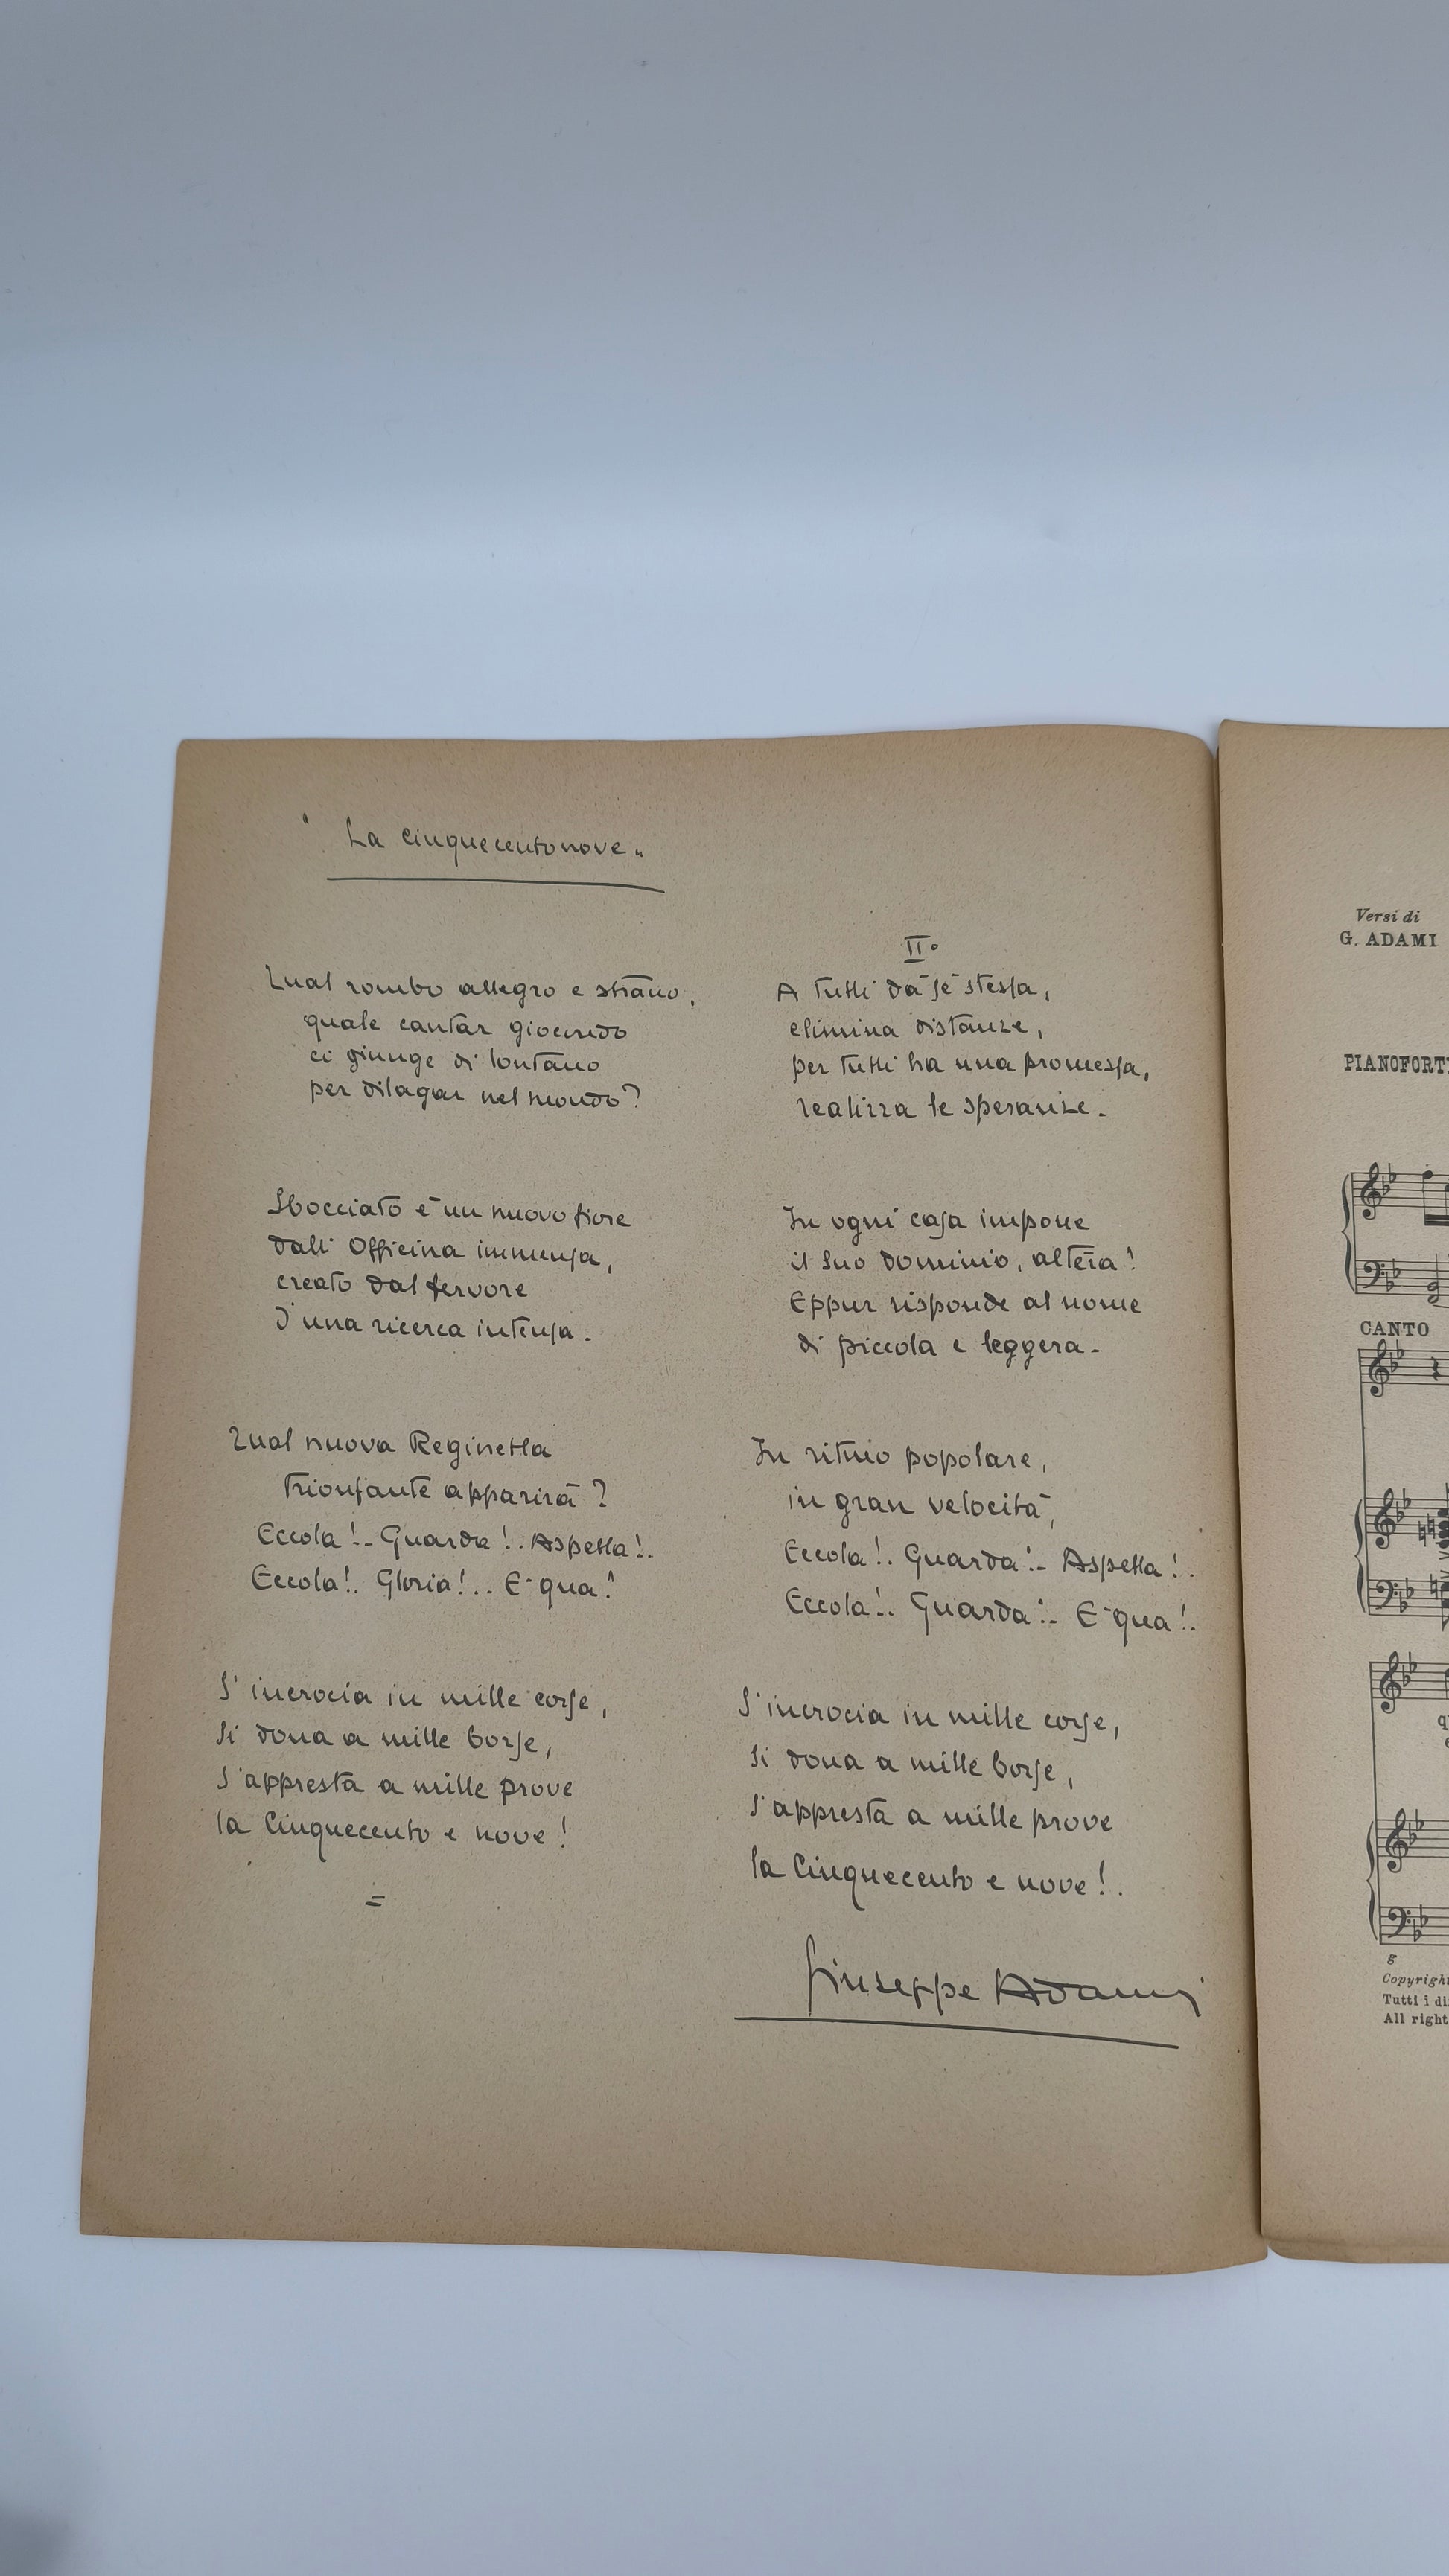 "La Cinquecentonove"
Qual rombo allegro e strano,
quale cantar giocondo
ci giunge di lontano
per dilagar nel mondo?
Sbocciato è un nuovo fiore
dall'Officina immensa,
creato dal fervore
d'una ricerca intensa.
Qual nuova Reginetta
trionfante apparirà?
Eccola!.. Guarda!.. Aspetta!..
Eccola!.. Gloria!... È qua!
S'incrocia in mille corse,
si dona a mille borse,
s'appresta a mille prove
la Cinquecento e nove!
=
II°
A tutti dà sè stessa,
elimina distanze,
per tutti ha una promessa,
realizza le speranze.
In ogni casa impone
il suo dominio, altera!
Eppur risponde al nome
di piccola e leggera.
In ritmo popolare,
in gran velocità,
Eccola!.. Guarda!.. Aspetta!..
Eccola!.. Guarda!.. È qua!..
S'incrocia in mille corse,
si dona a mille borse,
s'appresta a mille prove
la Cinquecento e nove!.
Giuseppe Adami
Versi di
G. ADAMI
PIANOFORT
CANTO
g
Copyright
Tutti i di
All right